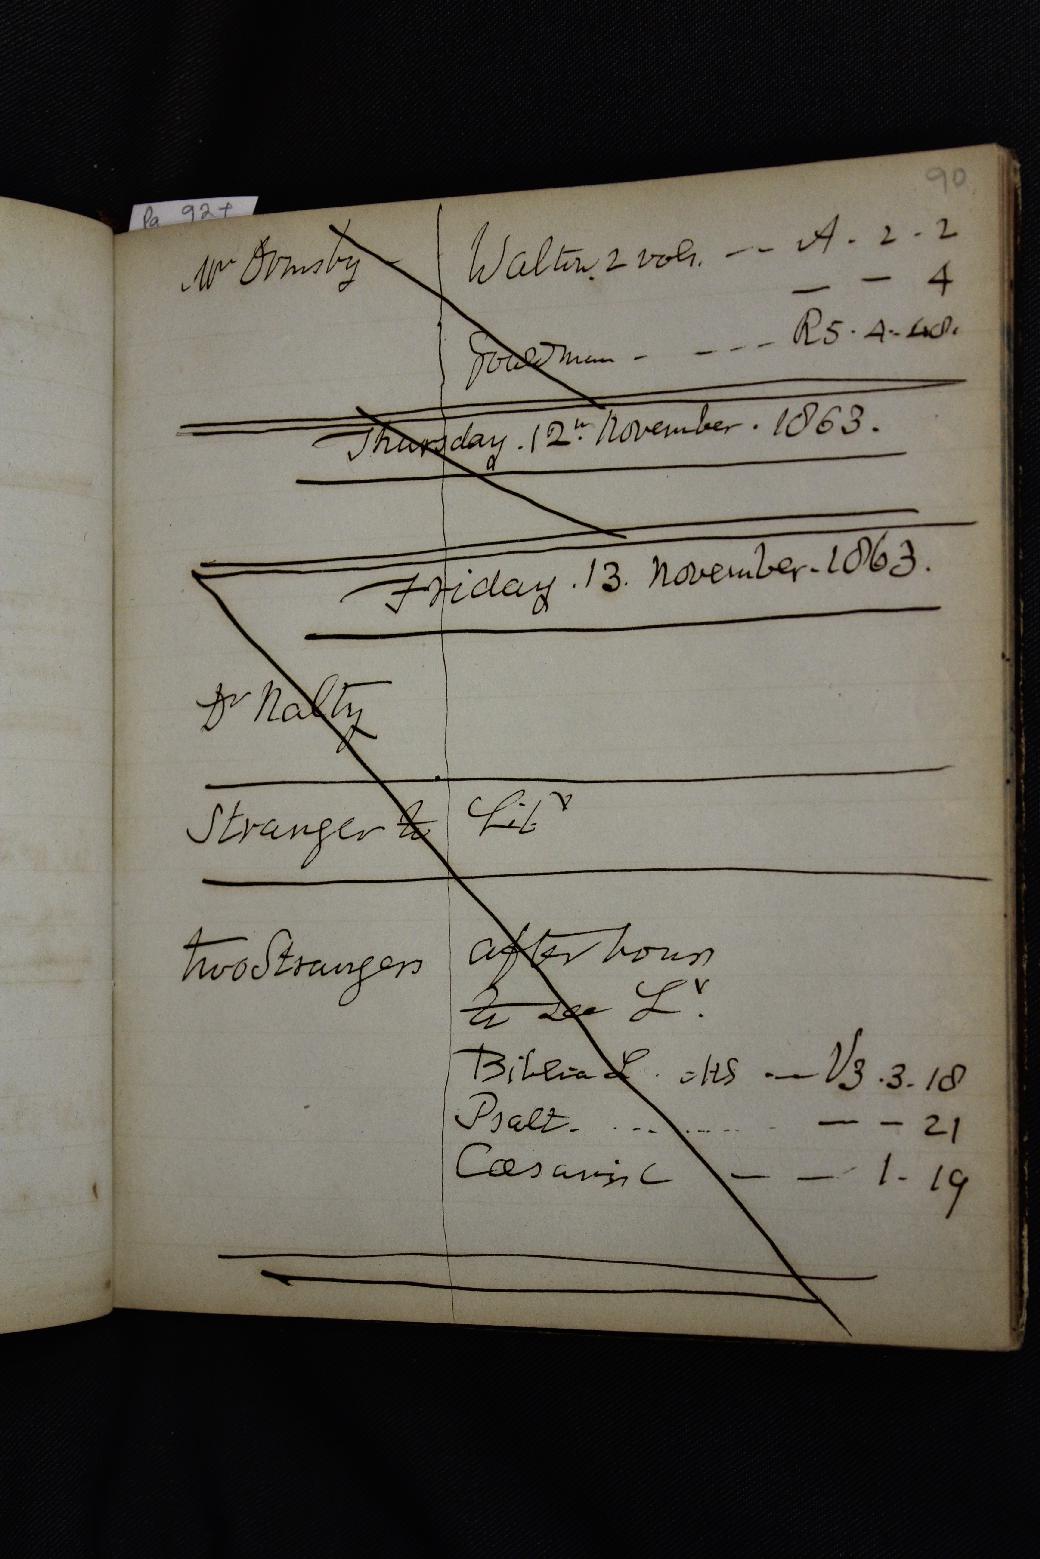 90
Pa 92+
Mr Ormsby - Walton. 2 vols. -- A. 2. 2
— — 4
Goodman - --- R5. 4. 48.
Thursday. 12th November. 1863.
Friday. 13. November. 1863.
Dr Nalty
Stranger to Liby
two Strangers after hours
to see Ly.
Biblia L. MS — V3. 3. 18
Psalt. ......... — — 21
— — 1. 19